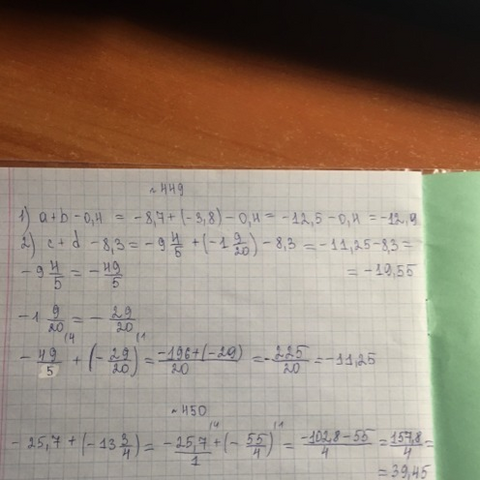 №449
1) a+b-0,4 = -8,7+(-3,8)-0,4= -12,5-0,4 =-12,9
2) c+d -8,3=-9 4/5 +(-1 9/20)-8,3 =-11,25-8,3=
=-19,55
-9 4/5 = -49/5
-1 9/20 = -29/20
-49/5 (4 + (-29/20) (1 = -196+(-29)/20 =-225/20 =-11,25
№450
- 25,7 + (-13 3/4)= -25,7/1 (4 +(-55/4) (1 = -102,8-55/4 =157,8/4=
=39,45